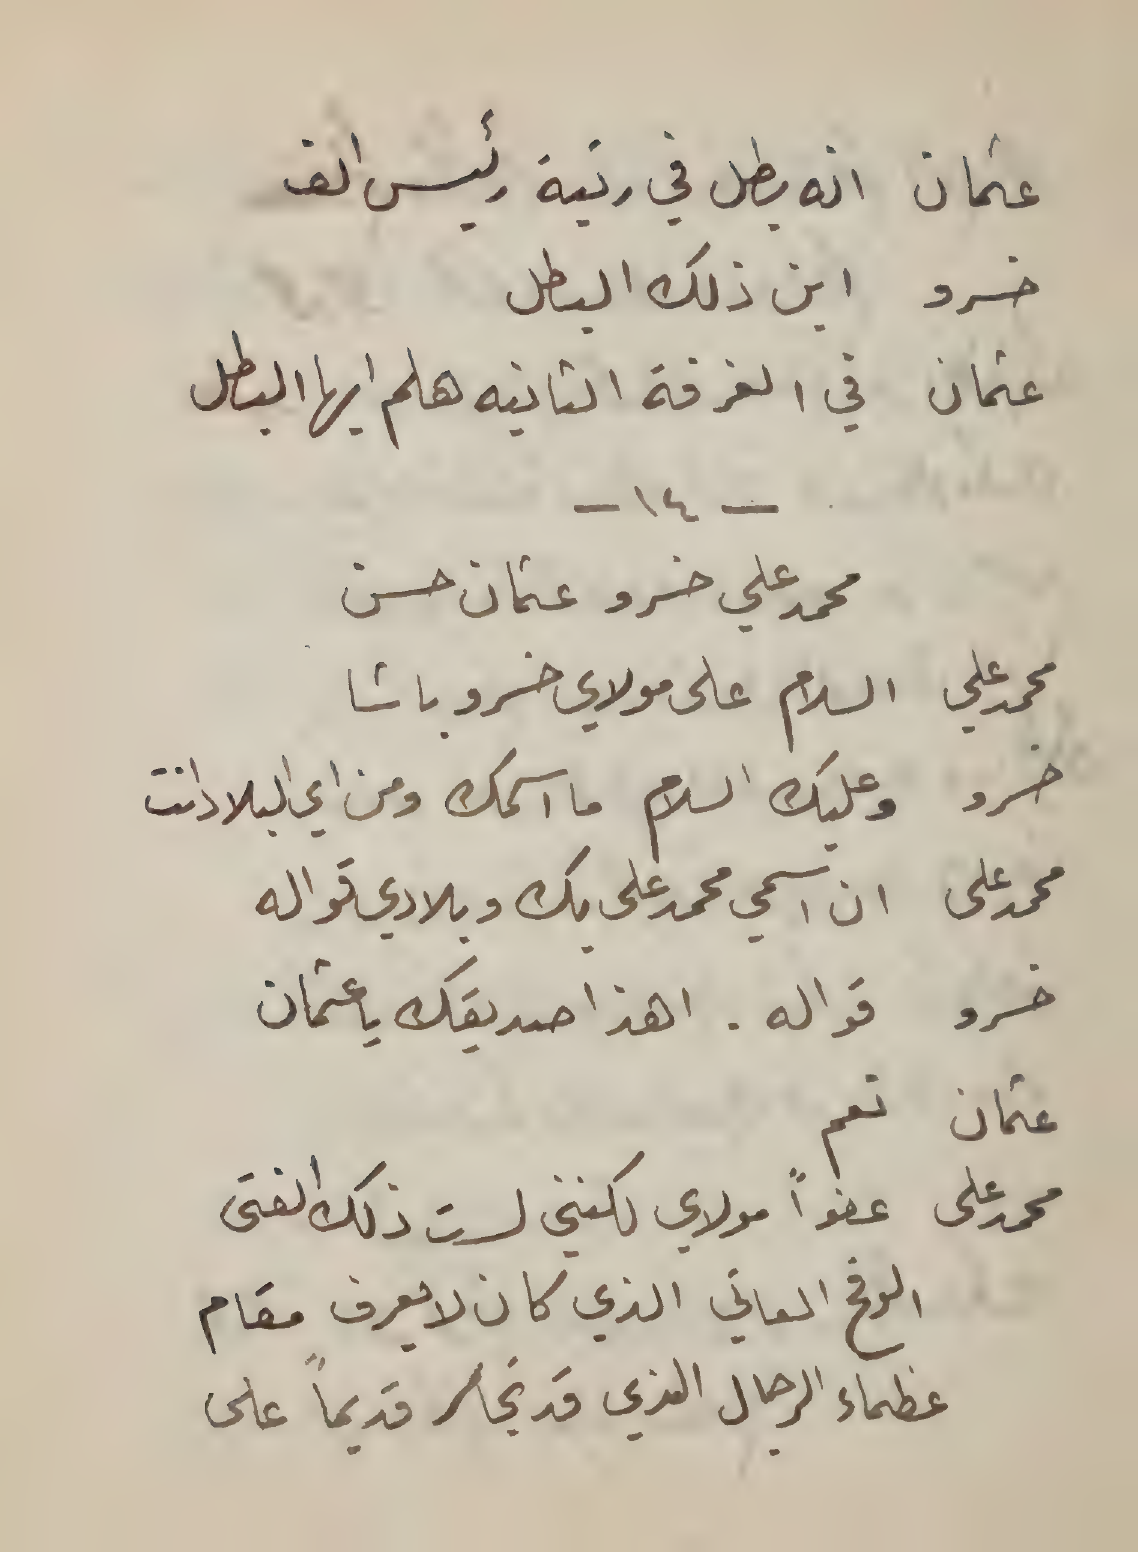 عثمان انه بطل في رتبة رئيس الف
خسرو اين ذلك البطل
عثمان في الغرفة الثانيه هلم ايها البطل
— ١٤ —
محمد علي خسرو عثمان حسن
محمد علي السلام على مولاي خسرو باشا
خسرو وعليك السلام ما اسمك ومن اي البلاد انت
محمد على ان اسمي محمد على بك وبلادي قواله
خسرو قواله . اهذا صديقك يا عثمان
عثمان نعم
محمد على عفواً مولاي لكنني لست ذلك الفتى
الوقح العاتي الذي كان لا يعرف مقام
عظماء الرجال الذي قد تجاسر قديماً على